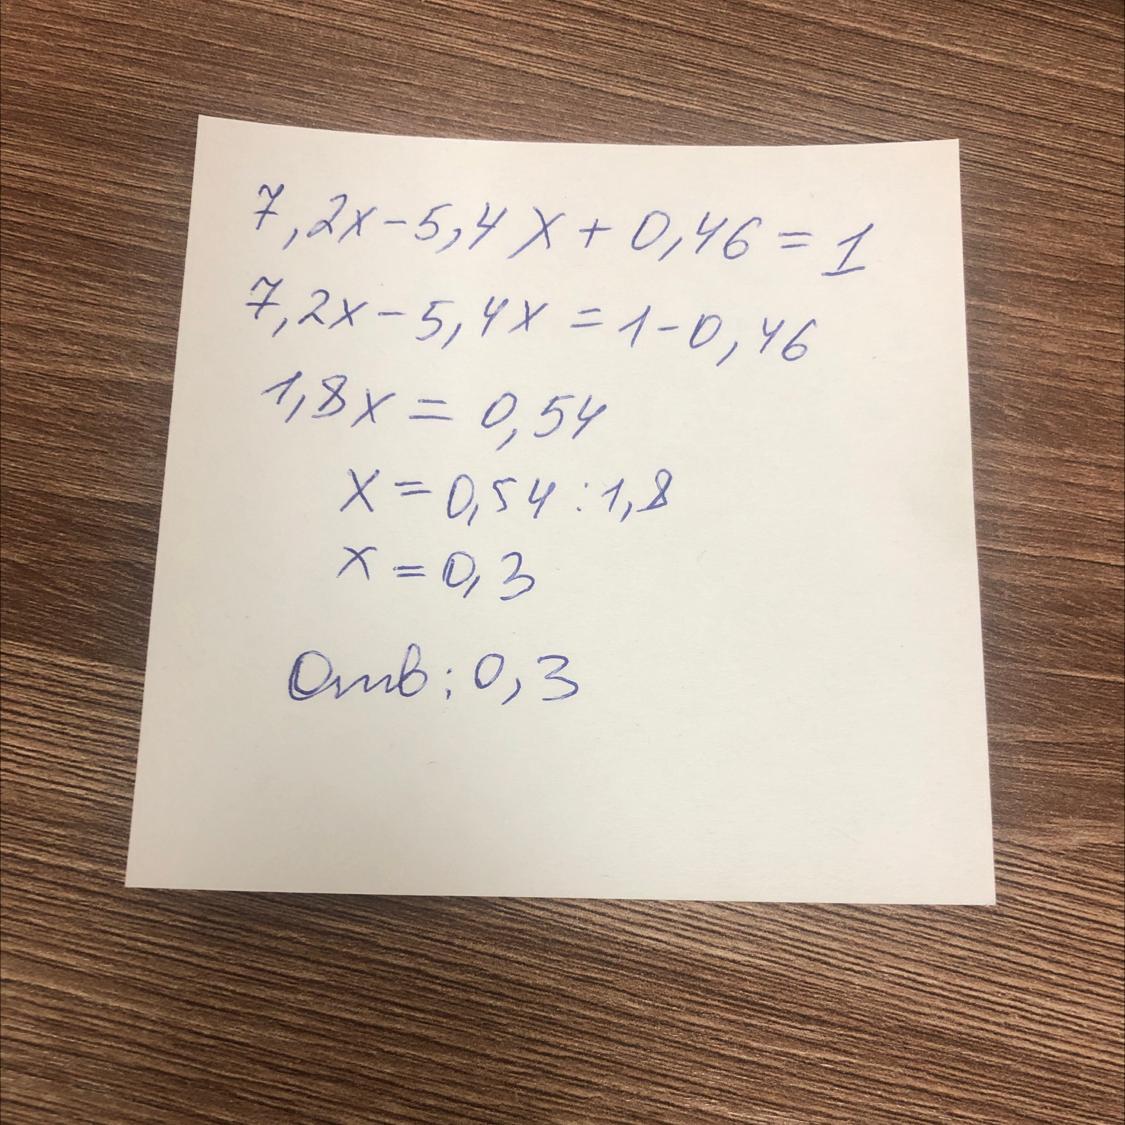 7,2x-5,4x+0,46=1
7,2x-5,4x=1-0,46
1,8x=0,54
x=0,54:1,8
x=0,3
Отв:0,3